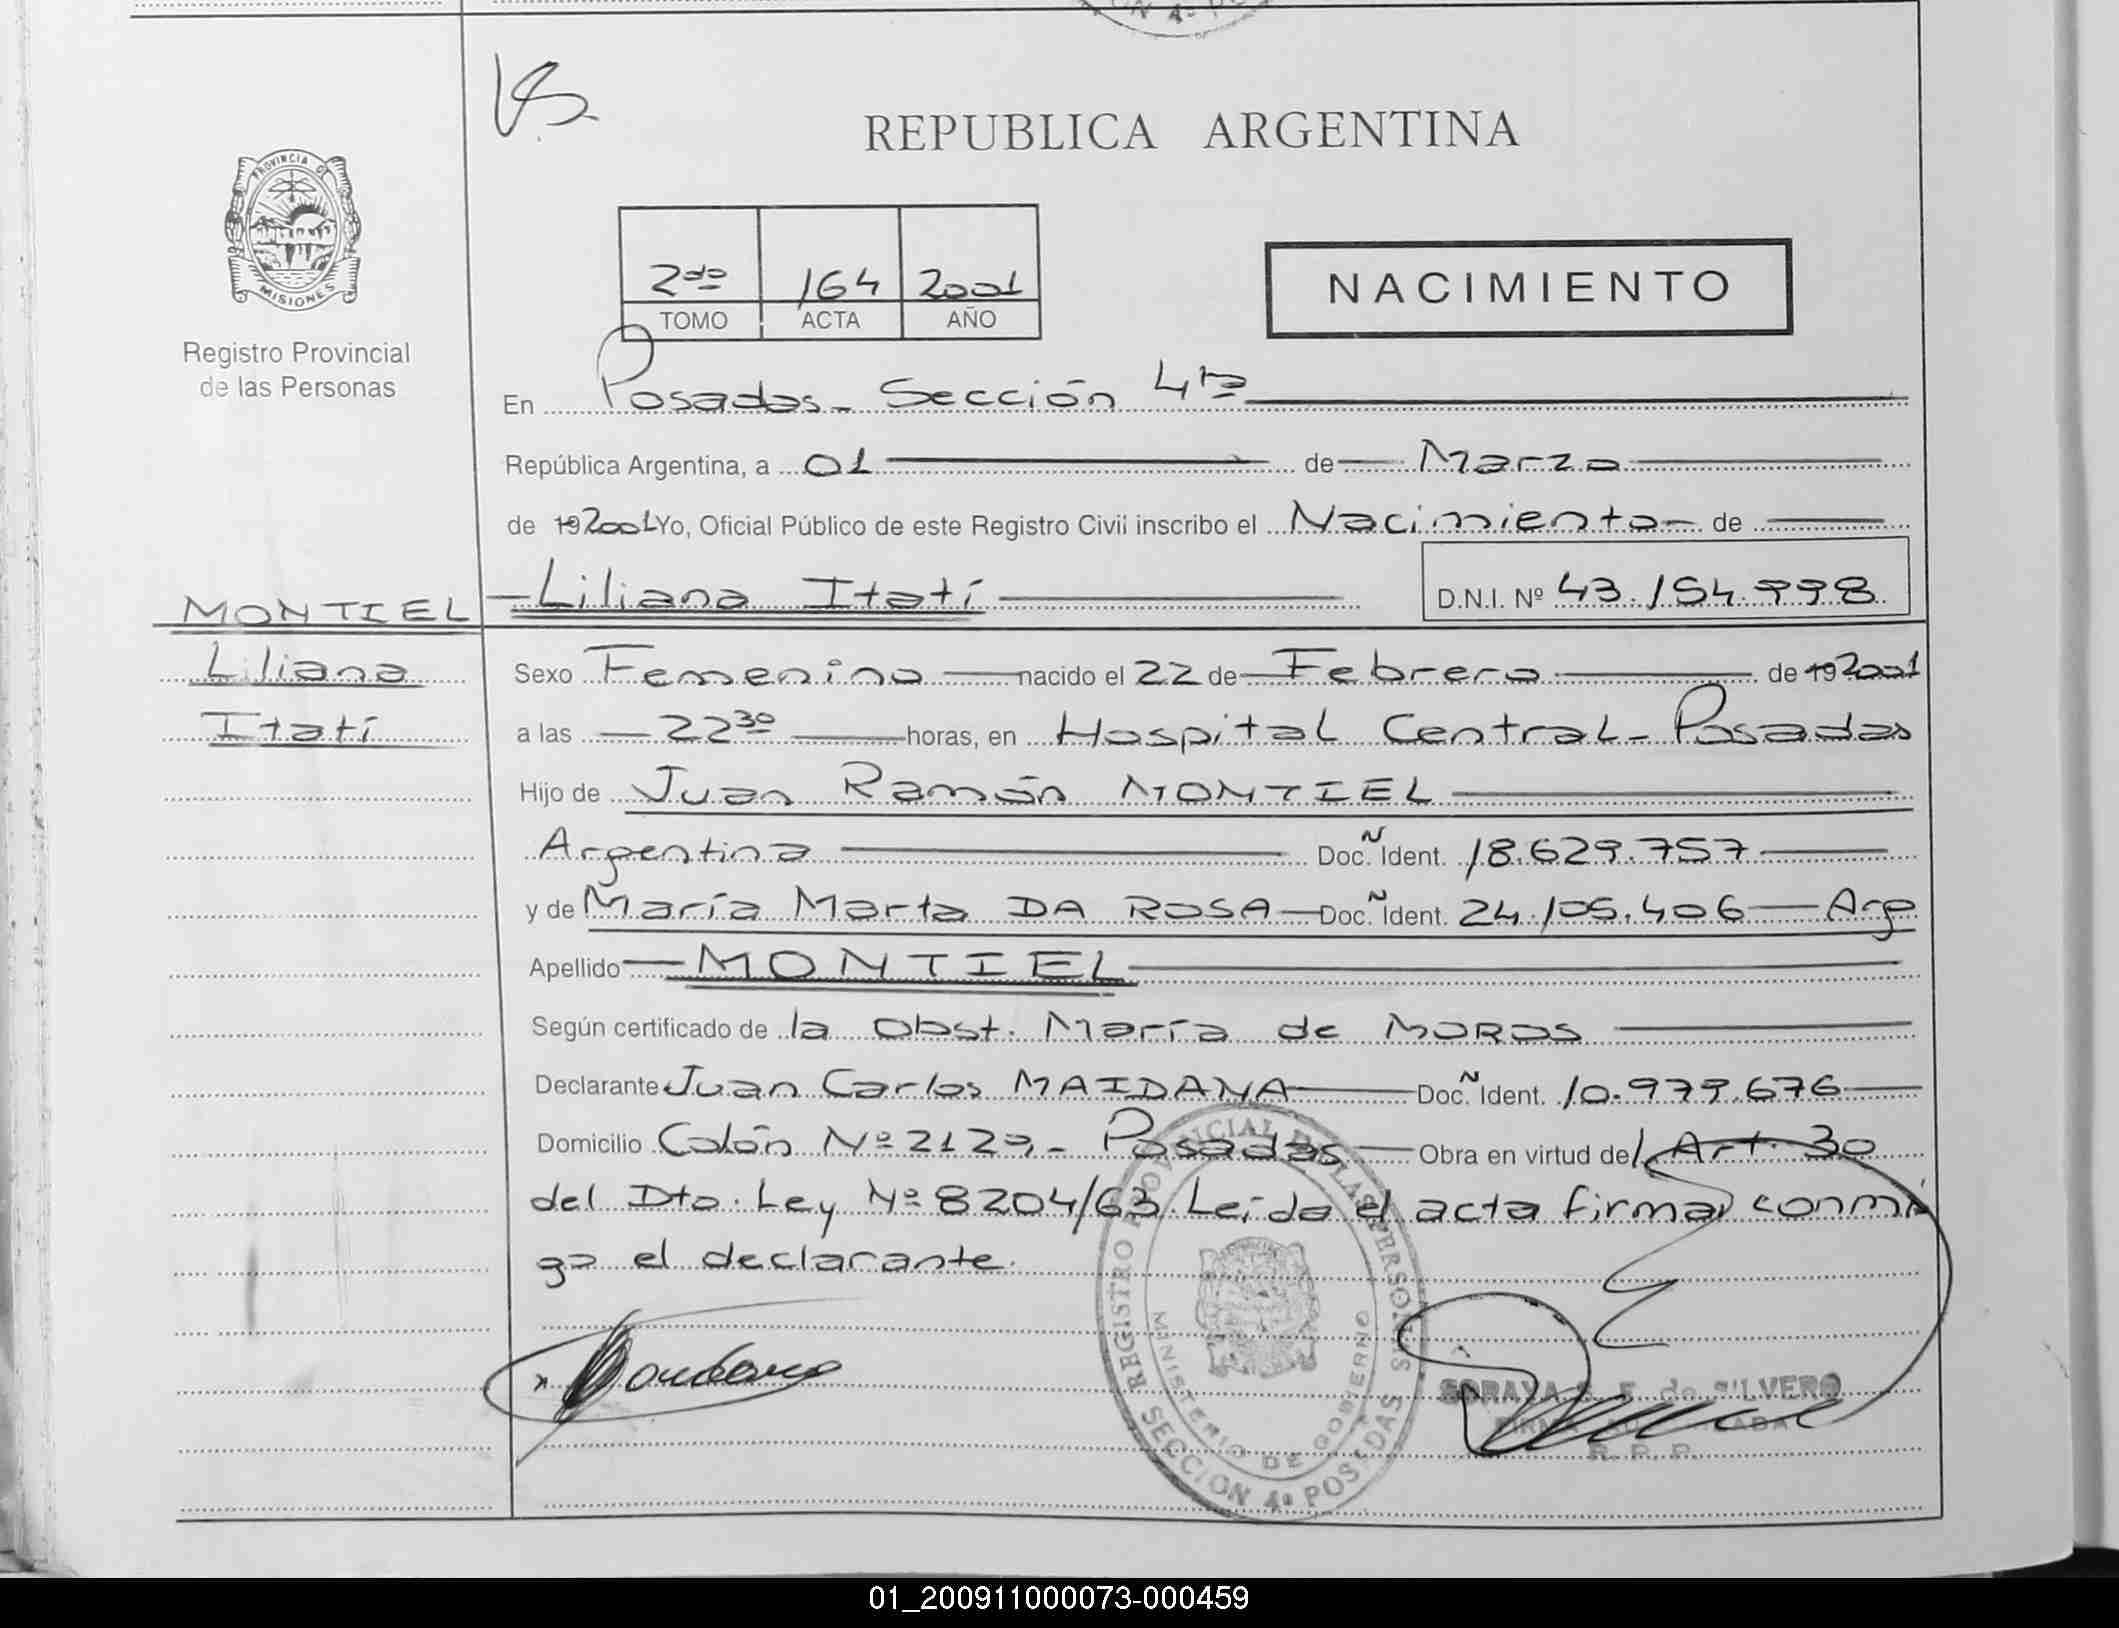 REPUBLICA ARGENTINA
PROVINCIA DE
MISIONES
Registro Provincial
de las Personas
2do 164 2001
TOMO ACTA AÑO
NACIMIENTO
En Posadas - Sección 4ta
República Argentina, a 01 de Marzo
de 19 2001 Yo, Oficial Público de este Registro Civil inscribo el Nacimiento de
MONTIEL Liliana Itatí D.N.I. Nº 43.154.998
Liliana
Itatí
Sexo Femenino nacido el 22 de Febrero de 19 2001
a las 22 30 horas, en Hospital Central - Posadas
Hijo de Juan Ramón MONTIEL
Argentina Doc. Ñ Ident. 18.629.757
y de María Marta DA ROSA Doc. Ñ Ident. 24.105.406 Arg
Apellido MONTIEL
Según certificado de la Obst. María de MOROS
Declarante Juan Carlos MAIDANA Doc. Ñ Ident. 10.979.676
Domicilio Colón Nº 2129,- Posadas Obra en virtud del Art. 30
del Dto. Ley Nº 8204/63. Leída el acta firma conmi
go el declarante.
REGISTRO PROVINCIAL DE LAS PERSONAS
MINISTERIO DE GOBIERNO
SECCION 4ª POSADAS
SORAYA S. F. de SILVERO
R. P. P.
01_200911000073-000459